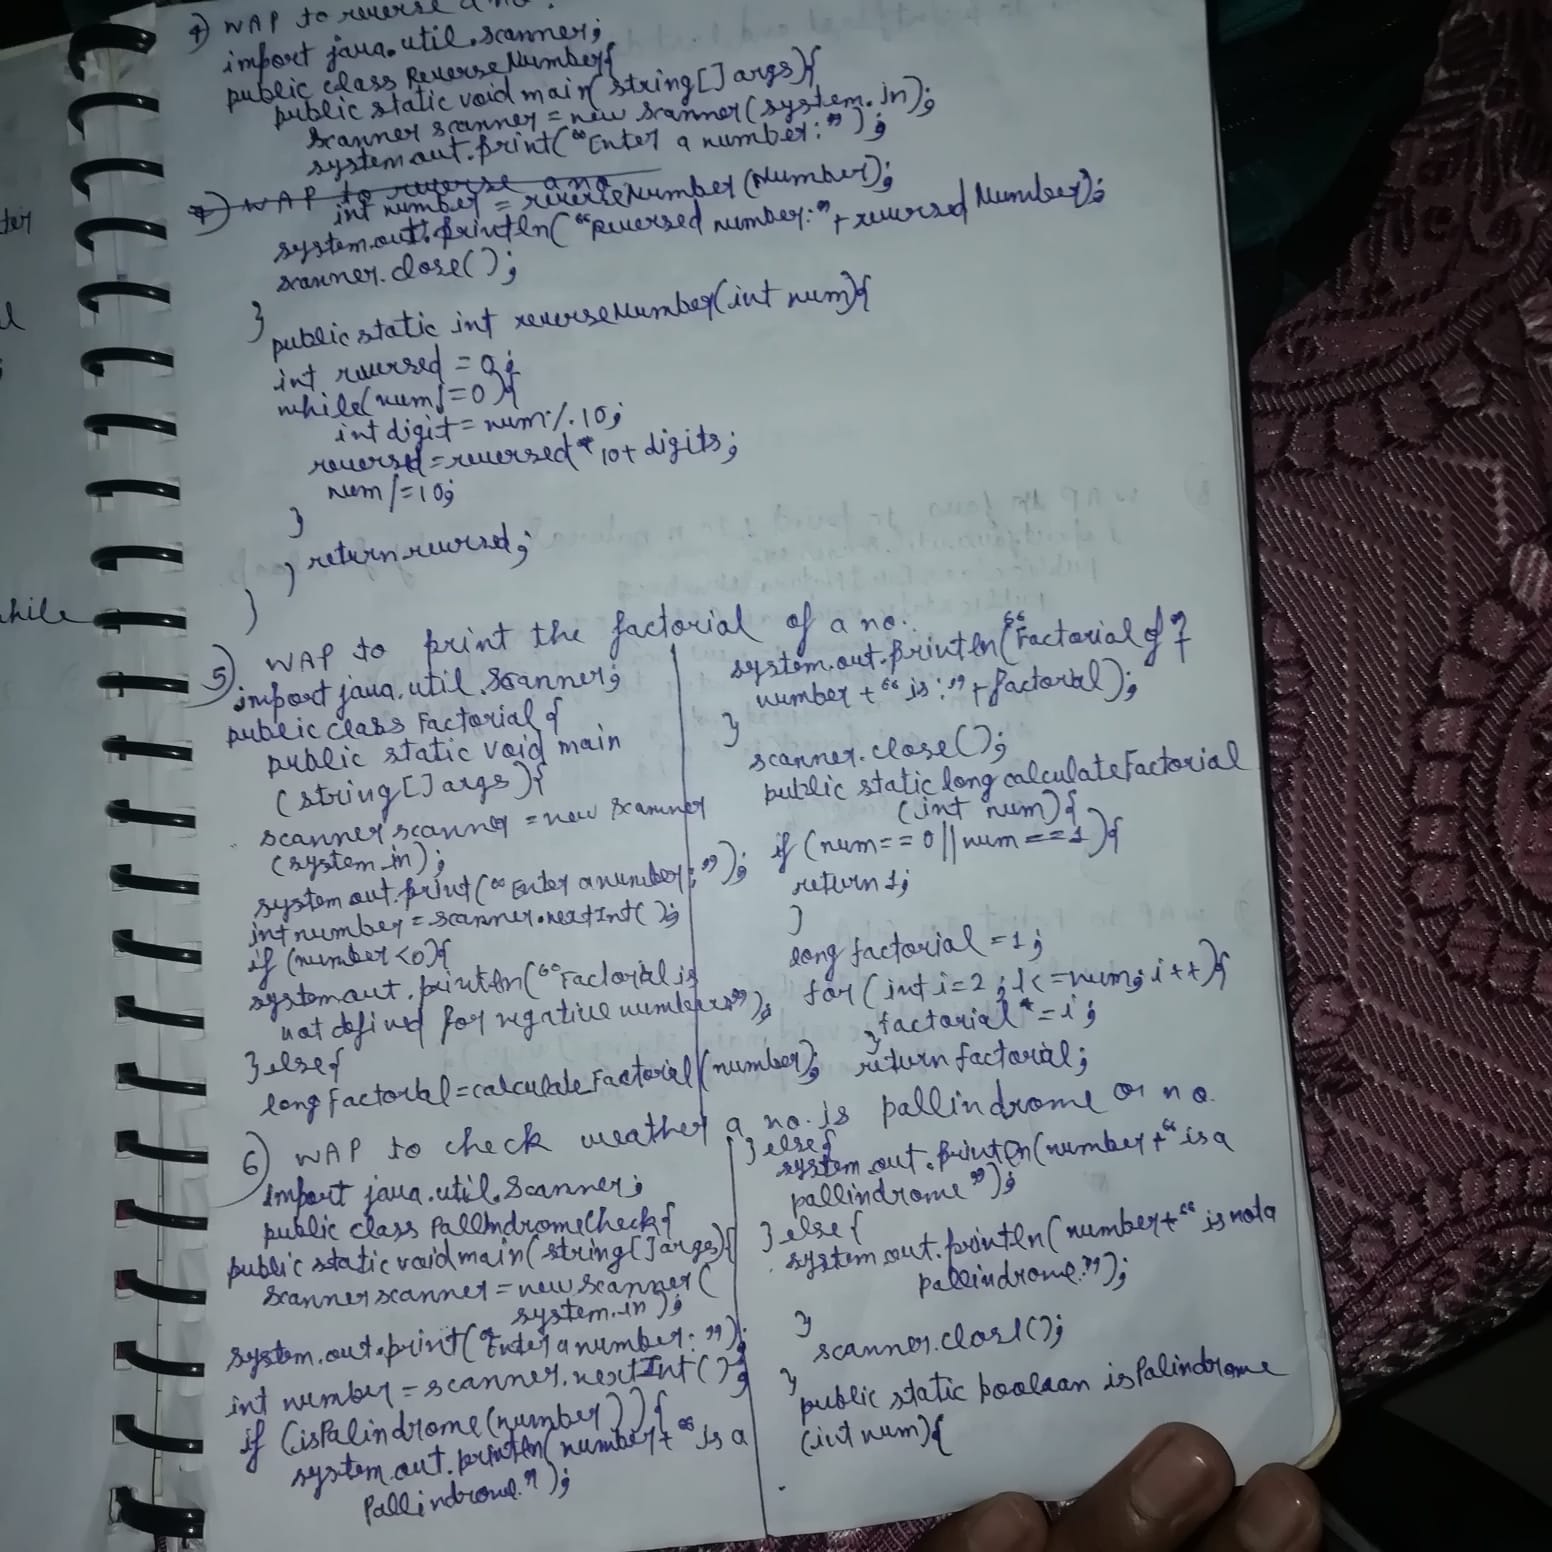 4) WAP to reverse a no.
import java.util.scanner;
public class ReverseNumber{
public static void main(string[]args){
scanner scanner = new scanner(system.in);
system.out.print("Enter a number:");
4) WAP to reverse a no
int number = reverseNumber(Number);
system.out.println("Reversed number:"+reversed Number);
scanner.close();
}
public static int reverseNumber(int num){
int reversed = 0;
while(num!=0){
int digit = num%10;
reversed = reversed*10+digits;
num/=10;
}
return reversed;
}
}
5) WAP to print the factorial of a no.
import java.util.Scanner;
public class Factorial{
public static void main
(string[]args){
scanner scanner = new scanner
(system.in);
system.out.print("Enter a number:");
int number = scanner.nextInt();
if (number<0){
system.out.println("Factorial is
not defined for negative numbers");
}else{
long factorial=calculateFactorial(number);
system.out.println("Factorial of"
number+"is:"+factorial);
}
scanner.close();
public static long calculateFactorial
(int num){
if (num==0||num==1){
return 1;
}
long factorial = 1;
for(int i=2;i<=num;i++){
factorial*=i;
}
return factorial;
6) WAP to check weather a no. is pallindrome or no.
import java.util.Scanner;
public class PallindromeCheck{
public static void main(string[]args){
scanner scanner = new scanner(
system.in);
system.out.print("Enter a number:");
int number = scanner.nextInt();
if (isPalindrome(number)){
system.out.println(number+"is a
Pallindrome.");
}else{
system.out.println(number+"is a
pallindrome");
}else{
system.out.println(number+"is not a
pallindrome.");
}
scanner.close();
}
public static boolean isPalindrome
(int num){
ter
while